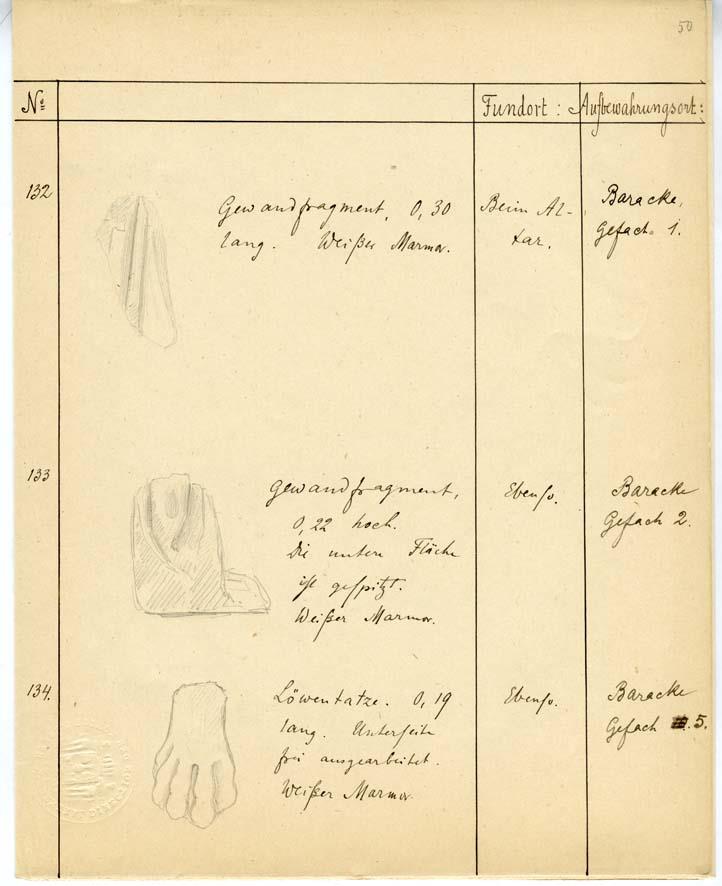 50
№ Fundort: Aufbewahrungsort:
132 Gewandfragment, 0,30 Beim Al- Baracke,
lang. Weißer Marmor. tar. Gefach 1.
133 Gewandfragment, Ebenso. Baracke
0,22 hoch. Gefach 2.
Die untere Fläche
ist gespitzt.
Weißer Marmor.
134. Löwentatze. 0,19 Ebenso. Baracke
lang. Unterseite Gefach 5.
frei ausgearbeitet.
Weißer Marmor.